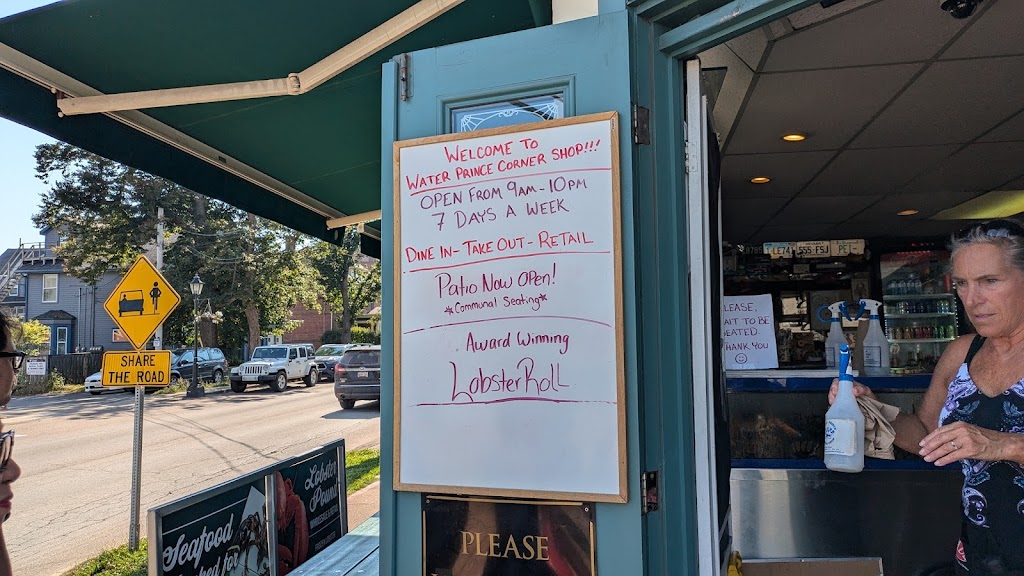 WELCOME TO
WATER PRINCE CORNER SHOP!!!
OPEN FROM 9AM-10PM
7 DAYS A WEEK
DINE IN-TAKE OUT-RETAIL
Patio Now Open!
*Communal Seating*
Award Winning
Lobster Roll
PLEASE
SHARE
THE ROAD
Seafood
Lobster
Pound
LEASE,
AIT TO BE
EATED.
HANK YOU
555·FSJ